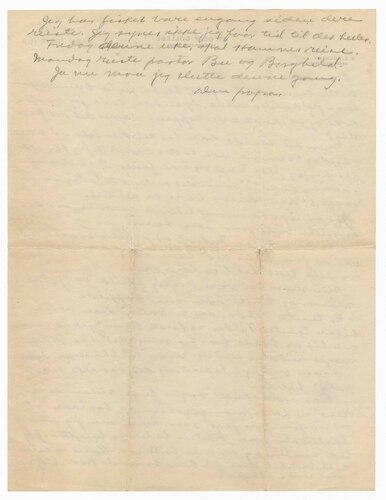 Jeg har fisket bare engang siden dere
reiste. Jeg synes ikke jeg faar tid til det heller.
Fredag denne uke, skal Hammer reise.
Mandag reiste pastor Bee og Borghild.
Ja nu maa jeg slutte denne gang.
Din papa.